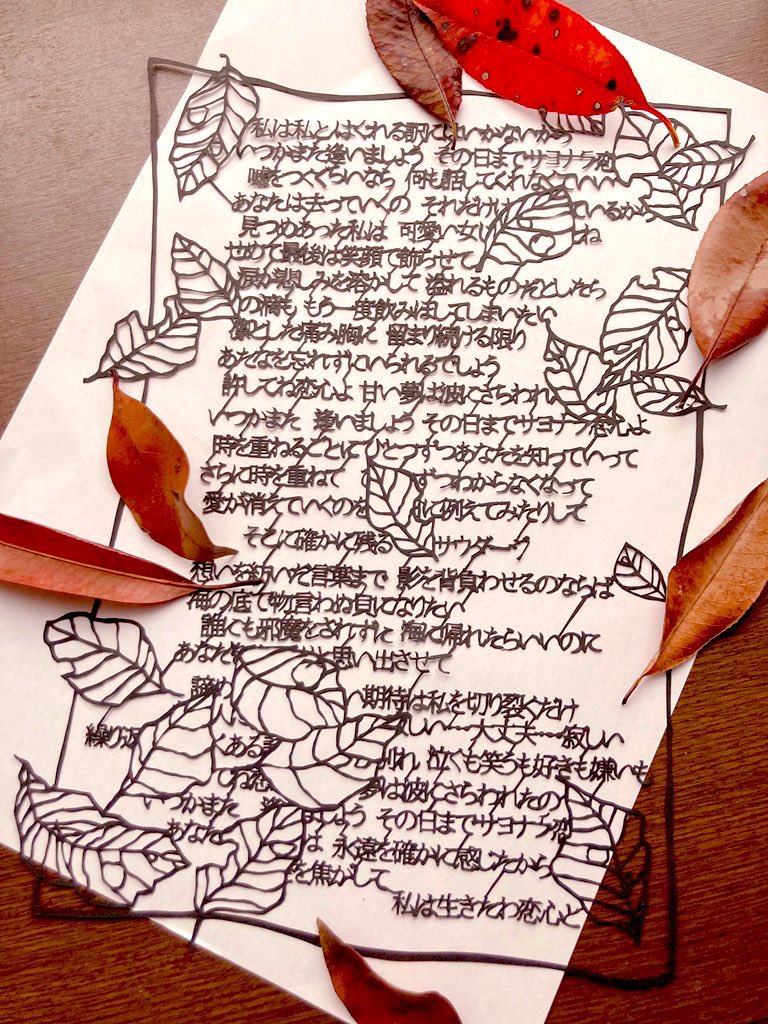 私は私とはぐれる訳にはいかないから
いつかまた逢いましょう その日までサヨナラ恋
嘘をつくぐらいなら 何も話してくれなくていい
あなたは去っていくの それだけは ているから
見つめあった私は 可愛い女 ね
せめて最後は笑顔で飾らせて
涙が悲しみを溶かして 溢れるものだとしたら
の滴も もう一度飲みほしてしまいたい
凛とした痛み胸に 留まり続ける限り
あなたを忘れずにいられるでしょう
許してね恋心よ 甘い夢は波にさらわれ
いつかまた 逢いましょう その日までサヨナラ恋心よ
時を重ねるごとに ひとつずつあなたを知っていって
さらに時を重ねて ずつわからなくなって
愛が消えていくのを に例えてみたりして
そこに確かに残る サウダージ
想いを紡いだ言葉まで 影を背負わせるのならば
海の底で物言わぬ貝になりたい
誰にも邪魔をされずに 海に帰れたらいいのに
あなた と思い出させて
諦め い期待は私を切り裂くだけ
人に しい……大丈夫……寂しい
繰り返 くある話 別れ 泣くも笑うも好きも嫌いも
てね恋 夢は波にさらわれたの
いつかまた 逢 しょう その日までサヨナラ恋
あなた は 永遠を確かに感じたから
を焦がして
私は生きたわ恋心と